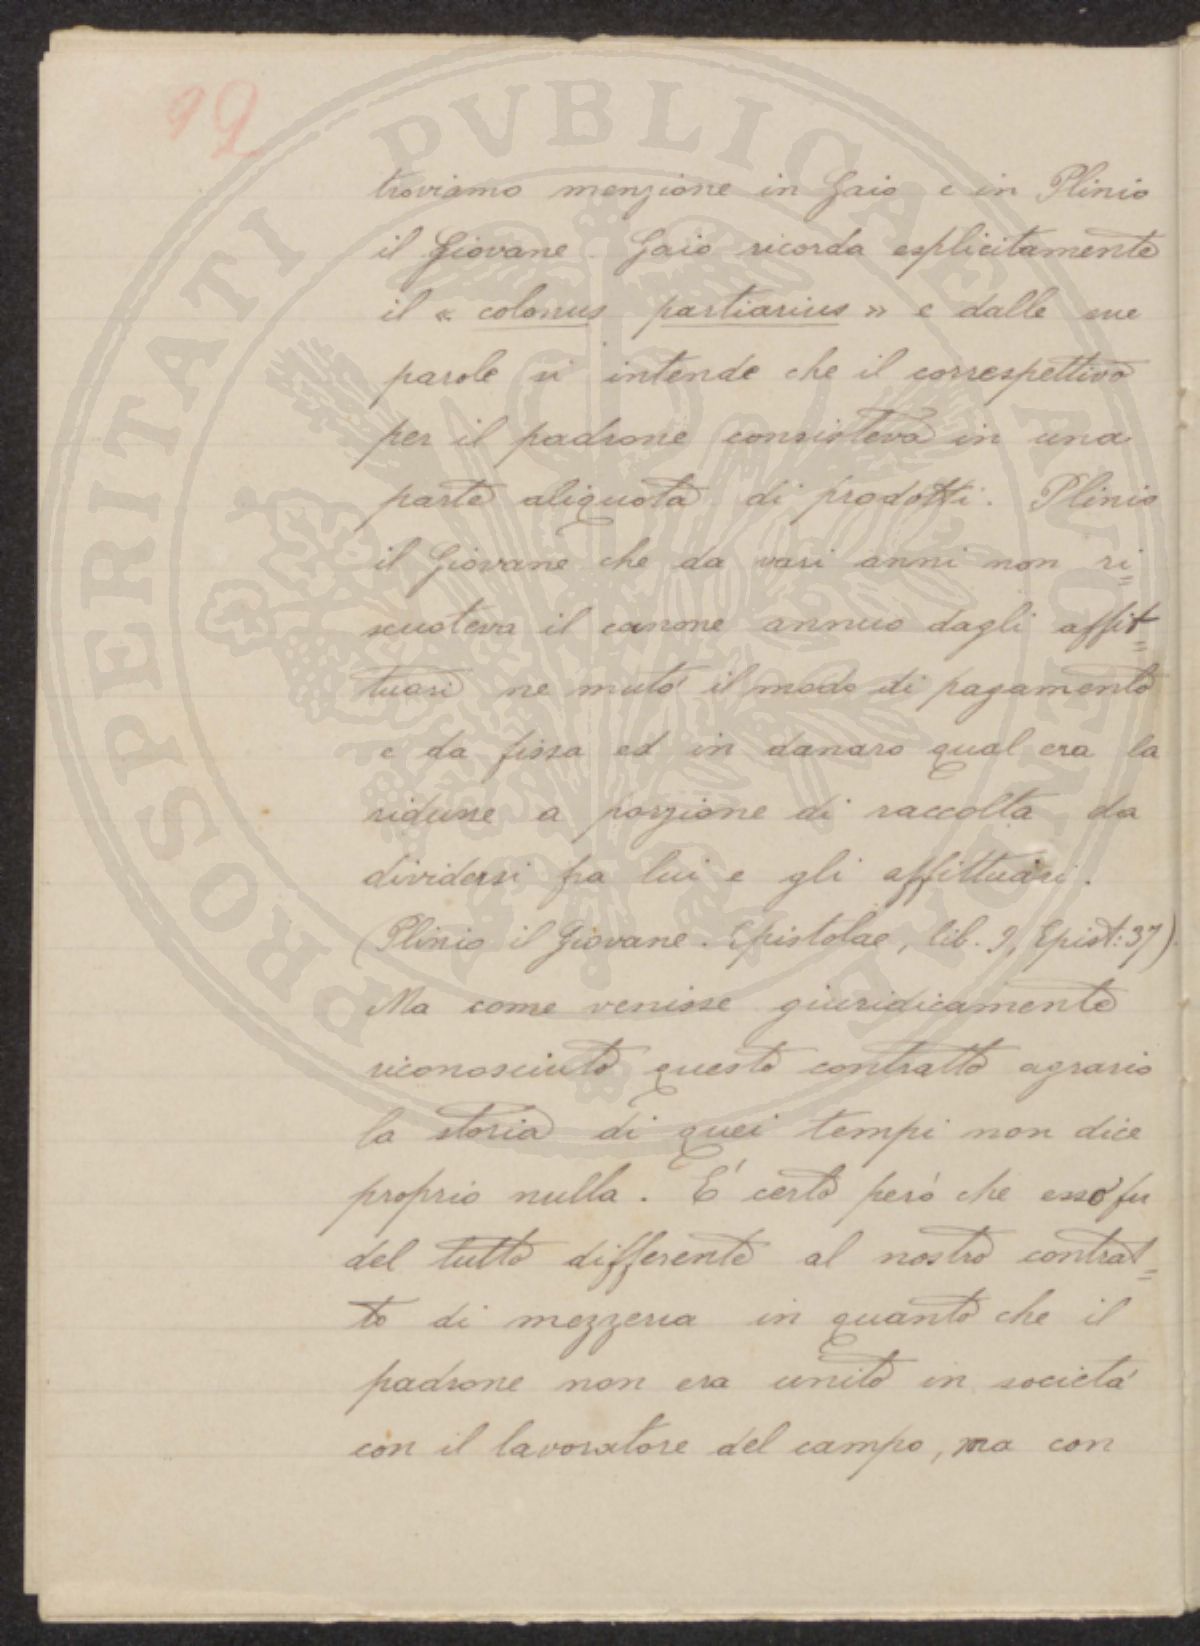 92
troviamo menzione in Gaio e in Plinio
il Giovane. Gaio ricorda esplicitamente
il « colonus partiarius » e dalle sue
parole si intende che il correspettivo
per il padrone consisteva in una
parte aliquota di prodotti. Plinio
il Giovane che da vari anni non ri=
scuoteva il canone annuo dagli affit=
tuari ne mutò il modo di pagamento
e da fissa ed in danaro qual era la
ridusse a porzione di raccolta da
dividersi fra lui e gli affittuari.
(Plinio il Giovane. Epistolae, lib. 9, Epist: 37).
Ma come venisse giuridicamente
riconosciuto questo contratto agrario
la storia di quei tempi non dice
proprio nulla. E' certo però che esso fu
del tutto differente al nostro contrat=
to di mezzeria in quanto che il
padrone non era unito in società
con il lavoratore del campo, ma con
PROSPERITATI PVBLICAE AVGENDAE